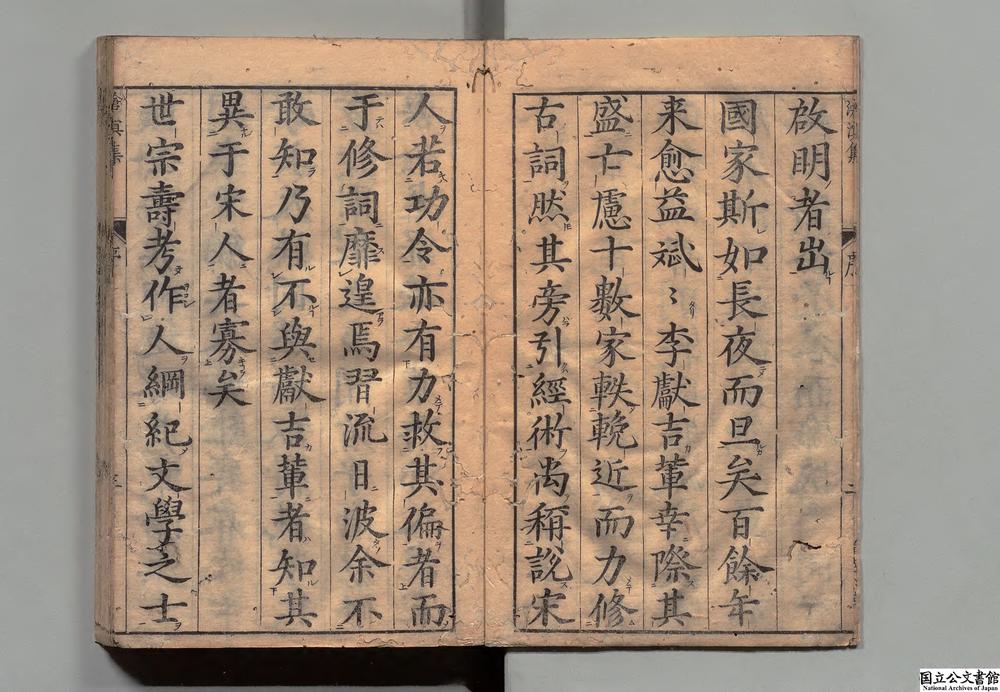 啟明者出
國家斯如長夜而旦矣百餘年
来愈益斌〻李獻吉軰幸際其
盛亡慮十數家軼輓近而力修
古詞然其旁引經術尚稱説宋
人若功令亦有力救其偏者而
于修詞靡遑焉習流日波余不
敢知乃有不與獻吉軰者知其
異于宋人者寡矣
世宗壽考作人綱紀文學之士
滄溟集
序
国立公文書館
National Archives of Japan